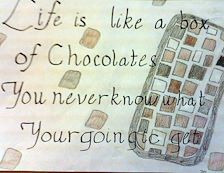 Life is like a box
of Chocolates
You never know what
Your going to get